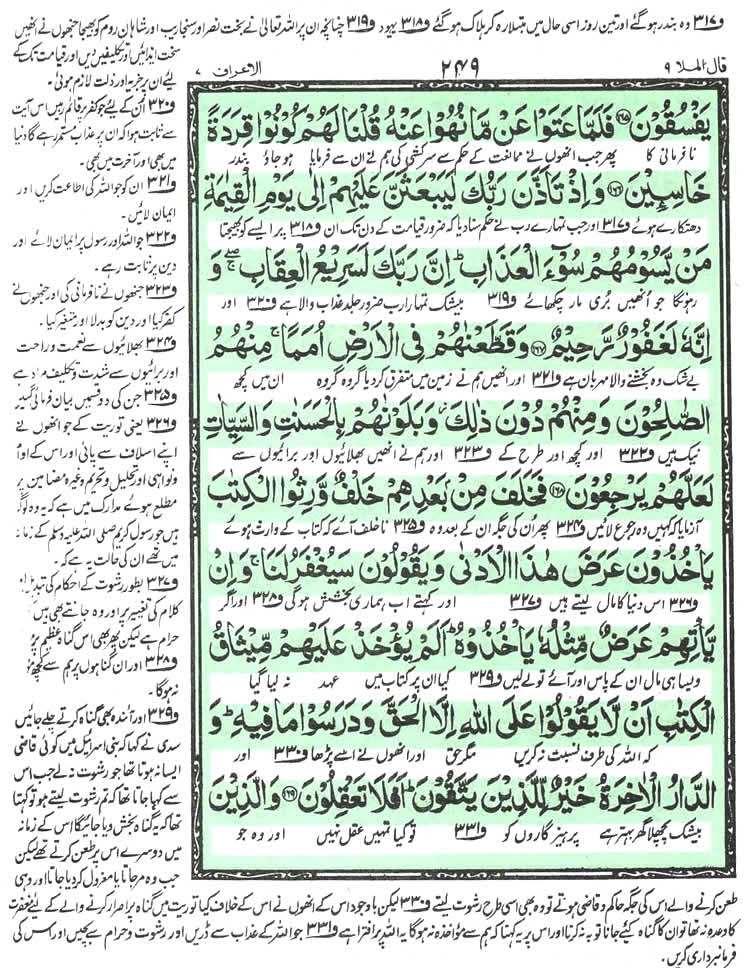 و۳۱۷ وہ بندر ہوگئے اور تین روز اسی حال میں مبتلا رہ کر ہلاک ہوگئے و۳۱۸ یہود و۳۱۹ چنانچہ ان پر اللہ تعالیٰ نے بخت نصر اور سنجاریب اور شاہان روم کو بھیجا جنھوں نے انھیں
سخت ایذائیں اور تکلیفیں دیں اور قیامت تک کے
لیے ان پر جزیہ اور ذلت لازم ہوئی۔
قال الملا ۹
۲۴۹
الاعراف ۷
يَفْسُقُوْنَ ﴿۱۶۵﴾ فَلَمَّا عَتَوْا عَنْ مَّا نُهُوْا عَنْهُ قُلْنَا لَهُمْ كُوْنُوْا قِرَدَةً
نافرمانی کا پھر جب انھوں نے ممانعت کے حکم سے سرکشی کی ہم نے ان سے فرمایا ہو جاؤ بندر
خَاسِـِٕيْنَ ﴿۱۶۶﴾ وَاِذْ تَاَذَّنَ رَبُّكَ لَيَبْعَثَنَّ عَلَيْهِمْ اِلٰى يَوْمِ الْقِيٰمَةِ
دھتکارے ہوئے و۳۱۷ اور جب تمہارے رب نے حکم سنا دیا کہ ضرور قیامت کے دن تک ان و۳۱۸ پر ایسے کو بھیجتا
مَنْ يَّسُوْمُهُمْ سُوْٓءَ الْعَذَابِ ؕ اِنَّ رَبَّكَ لَسَرِيْعُ الْعِقَابِ ۚۖ وَ
رہونگا جو انھیں بری مار چکھائے و۳۱۹ بیشک تمہارا رب ضرور جلد عذاب والا ہے و۳۲۰ اور
اِنَّهٗ لَغَفُوْرٌ رَّحِيْمٌ ﴿۱۶۷﴾ وَقَطَّعْنٰهُمْ فِى الْاَرْضِ اُمَمًا ۚ مِنْهُمُ
بے شک وہ بخشنے والا مہربان ہے و۳۲۱ اور انھیں ہم نے زمین میں متفرق کردیا گروہ گروہ ان میں کچھ
الصّٰلِحُوْنَ وَمِنْهُمْ دُوْنَ ذٰلِكَ ؗ وَبَلَوْنٰهُمْ بِالْحَسَنٰتِ وَالسَّيِّاٰتِ
نیک ہیں و۳۲۲ اور کچھ اور طرح کے و۳۲۳ اور ہم نے انھیں بھلائیوں اور برائیوں سے
لَعَلَّهُمْ يَرْجِعُوْنَ ﴿۱۶۸﴾ فَخَلَفَ مِنْۢ بَعْدِهِمْ خَلْفٌ وَّرِثُوا الْكِتٰبَ
آزمایا کہ کہیں وہ رجوع لائیں و۳۲۴ پھر ان کی جگہ ان کے بعد وہ و۳۲۵ ناخلف آئے کہ کتاب کے وارث ہوئے
يَاْخُذُوْنَ عَرَضَ هٰذَا الْاَدْنٰى وَيَقُوْلُوْنَ سَيُغْفَرُ لَنَا ۚ وَاِنْ
و۳۲۶ اس دنیا کا مال لیتے ہیں و۳۲۷ اور کہتے اب ہماری بخشش ہوگی و۳۲۸ اور اگر
يَّاْتِهِمْ عَرَضٌ مِّثْلُهٗ يَاْخُذُوْهُ ؕ اَلَمْ يُؤْخَذْ عَلَيْهِمْ مِّيْثَاقُ
ویسا ہی مال ان کے پاس اور آئے تو لے لیں و۳۲۹ کیا ان پر کتاب میں عہد نہ لیا گیا
الْكِتٰبِ اَنْ لَّا يَقُوْلُوْا عَلَى اللّٰهِ اِلَّا الْحَقَّ وَدَرَسُوْا مَا فِيْهِ ؕ وَ
کہ اللہ کی طرف نسبت نہ کریں مگر حق اور انھوں نے اسے پڑھا و۳۳۰ اور
الدَّارُ الْاٰخِرَةُ خَيْرٌ لِّلَّذِيْنَ يَتَّقُوْنَ ؕ اَفَلَا تَعْقِلُوْنَ ﴿۱۶۹﴾ وَالَّذِيْنَ
بیشک پچھلا گھر بہتر ہے پرہیزگاروں کو و۳۳۱ تو کیا تمہیں عقل نہیں اور وہ جو
و۳۲۰ ان کے لئے جو کفر پر قائم رہیں اس آیت
سے ثابت ہوا کہ ان پر عذاب مستمر رہے گا دنیا
میں بھی اور آخرت میں بھی۔
و۳۲۱ ان کو جو اللہ کی اطاعت کریں اور
ایمان لائیں۔
و۳۲۲ جو اللہ اور رسول پر ایمان لائے اور
دین پر ثابت رہے۔
و۳۲۳ جنھوں نے نافرمانی کی اور جنھوں نے
کفر کیا اور دین کو بدلا اور متغیر کیا۔
و۳۲۴ بھلائیوں سے نعمت و راحت
اور برائیوں سے شدت و تکلیف مراد ہے
و۳۲۵ جن کی دو قسمیں بیان فرمائی گئیں
و۳۲۶ یعنی توریت کے جو انھوں نے
اپنے اسلاف سے پائی اور اس کے اوامر
و نواہی اور تحلیل و تحریم وغیرہ مضامین پر
مطلع ہوئے مدارک میں ہے کہ یہ وہ لوگ
ہیں جو رسول کریم صلی اللہ علیہ وسلم کے زمانہ
میں تھے ان کی حالت یہ ہے کہ۔
و۳۲۷ بطور رشوت کے احکام کی تبدیل اور
کلام کی تغییر پر اور وہ جانتے بھی ہیں کہ
حرام ہے لیکن پھر بھی اس گناہ عظیم پر
و۳۲۸ اور ان گناہوں پر ہم سے کچھ مؤاخذہ
نہ ہوگا۔
و۳۲۹ اور آئندہ بھی گناہ کرتے چلے جائیں
سدی نے کہا کہ بنی اسرائیل میں کوئی قاضی
ایسا نہ ہوتا تھا جو رشوت نہ لے جب اس
سے کہا جاتا تھا کہ تم رشوت لیتے ہو تو کہتا
تھا کہ یہ گناہ بخش دیا جائیگا اس کے زمانہ
میں دوسرے اس پر طعن کرتے تھے لیکن
جب وہ مر جاتا یا معزول کردیا جاتا اور وہی
طعن کرنے والے اس کی جگہ حاکم و قاضی ہوتے تو وہ بھی اسی طرح رشوت لیتے و۳۳۰ لیکن باوجود اس کے انھوں نے اس کے خلاف کیا توریت میں گناہ پر اصرار کرنے والے کے لئے مغفرت
کا وعدہ نہ تھا تو ان کا گناہ کئے جانا توبہ نہ کرنا اور اس پر یہ کہنا کہ ہم سے مؤاخذہ نہ ہوگا یہ اللہ پر افترا ہے و۳۳۱ جو اللہ کے عذاب سے ڈریں اور رشوت و حرام سے بچیں اور اس کی
فرمانبرداری کریں۔